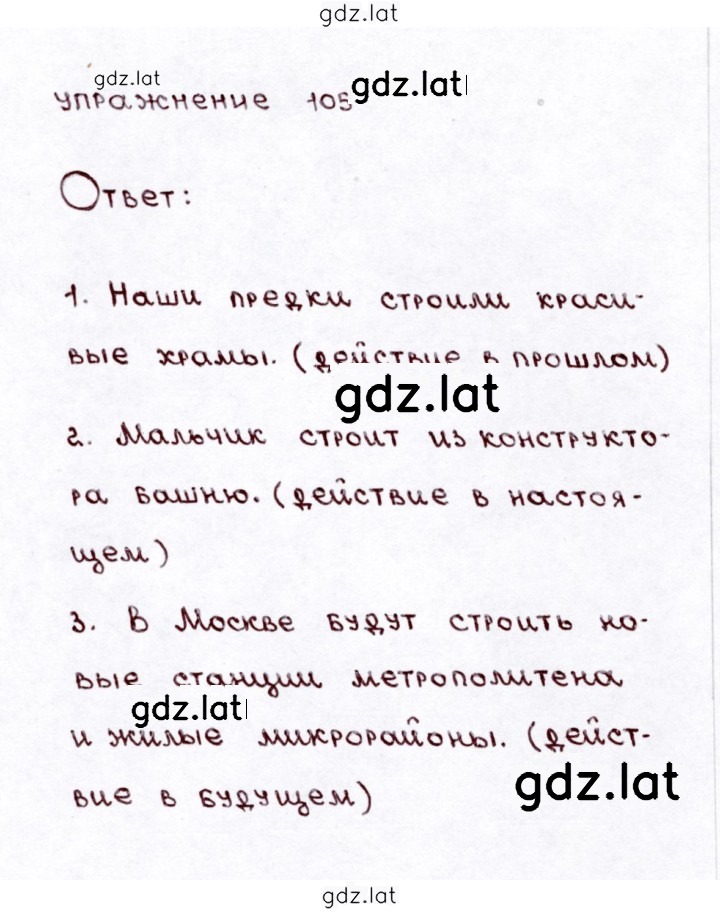 gdz.lat
gdz.lat
упражнение 105 gdz.lat
Ответ:
1. Наши предки строили краси-
вые храмы. (действие в прошлом)
gdz.lat
2. Мальчик строит из конструкто-
ра башню. (действие в настоя-
щем)
3. В Москве будут строить но-
вые станции метрополитена
gdz.lat
и жилые микрорайоны. (дейст-
gdz.lat
вие в будущем)
gdz.lat